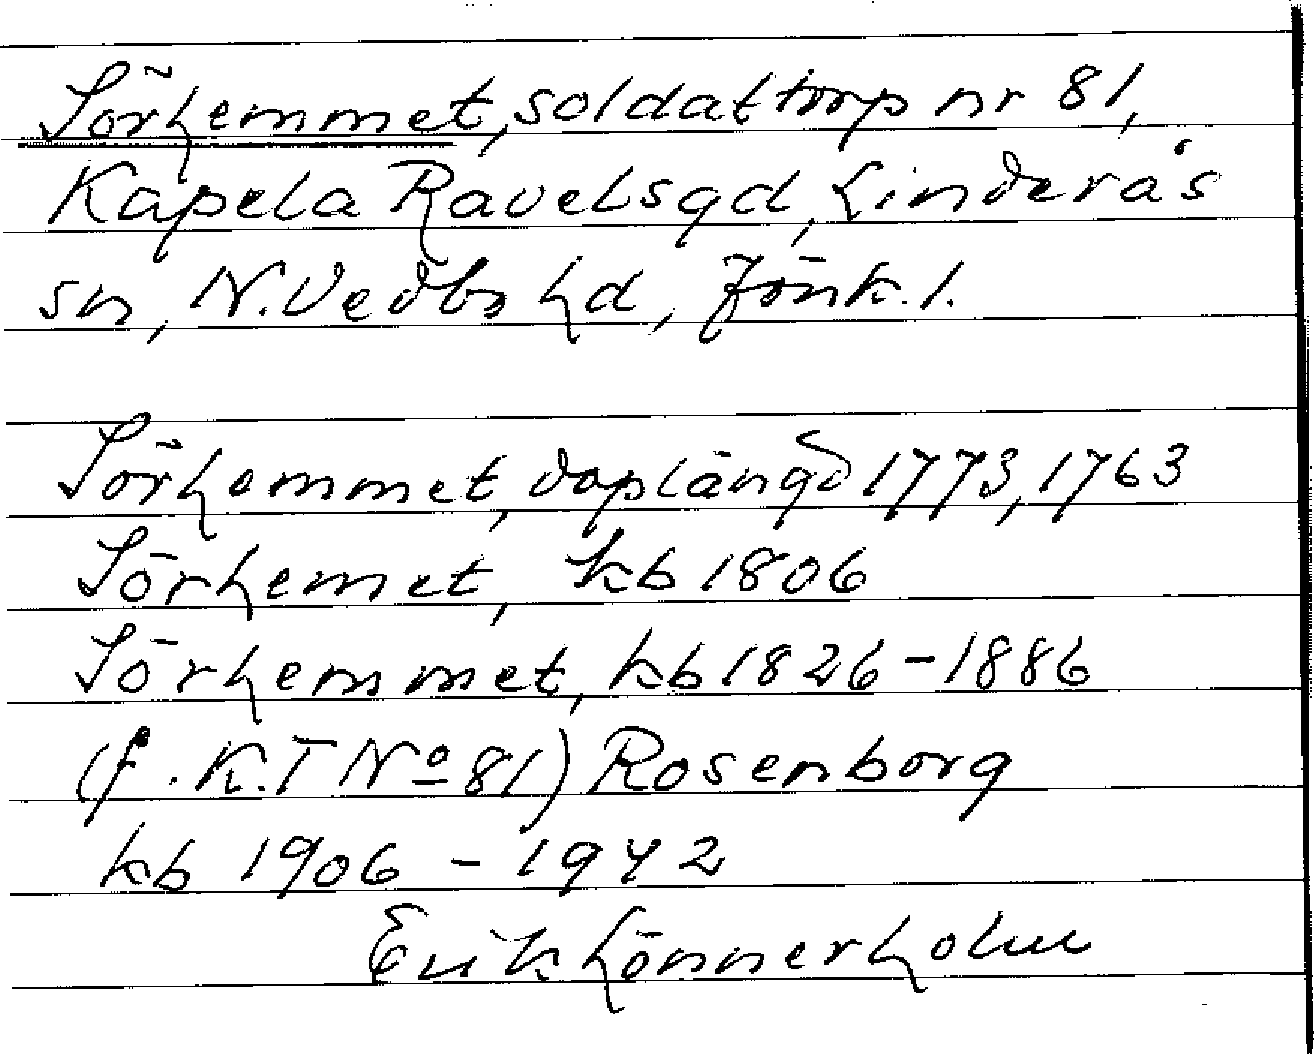 Sörhemmet, soldattorp nr 81,
Kapela Ravelsgd, Linderås
sn, N. Vedbo hd, Jönk. l.
Sörhemmet, doplängd 1773, 1763
Sörhemet, kb 1806
Sörhemmet, kb 1826-1886
(f. K.T Nº 81) Rosenborg
kb 1906 - 1942
Erik Lönnerholm